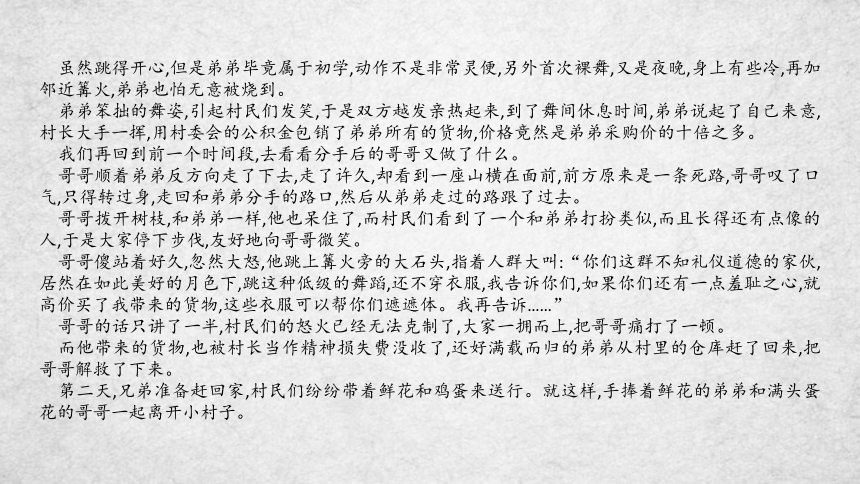 虽然跳得开心,但是弟弟毕竟属于初学,动作不是非常灵便,另外首次裸舞,又是夜晚,身上有些冷,再加
邻近篝火,弟弟也怕无意被烧到。
弟弟笨拙的舞姿,引起村民们发笑,于是双方越发亲热起来,到了舞间休息时间,弟弟说起了自己来意,
村长大手一挥,用村委会的公积金包销了弟弟所有的货物,价格竟然是弟弟采购价的十倍之多。
我们再回到前一个时间段,去看看分手后的哥哥又做了什么。
哥哥顺着弟弟反方向走了下去,走了许久,却看到一座山横在面前,前方原来是一条死路,哥哥叹了口
气,只得转过身,走回和弟弟分手的路口,然后从弟弟走过的路跟了过去。
哥哥拨开树枝,和弟弟一样,他也呆住了,而村民们看到了一个和弟弟打扮类似,而且长得还有点像的
人,于是大家停下步伐,友好地向哥哥微笑。
哥哥傻站着好久,忽然大怒,他跳上篝火旁的大石头,指着人群大叫:“你们这群不知礼仪道德的家伙,
居然在如此美好的月色下,跳这种低级的舞蹈,还不穿衣服,我告诉你们,如果你们还有一点羞耻之心,就
高价买了我带来的货物,这些衣服可以帮你们遮遮体。我再告诉……”
哥哥的话只讲了一半,村民们的怒火已经无法克制了,大家一拥而上,把哥哥痛打了一顿。
而他带来的货物,也被村长当作精神损失费没收了,还好满载而归的弟弟从村里的仓库赶了回来,把
哥哥解救了下来。
第二天,兄弟准备赶回家,村民们纷纷带着鲜花和鸡蛋来送行。就这样,手捧着鲜花的弟弟和满头蛋
花的哥哥一起离开小村子。